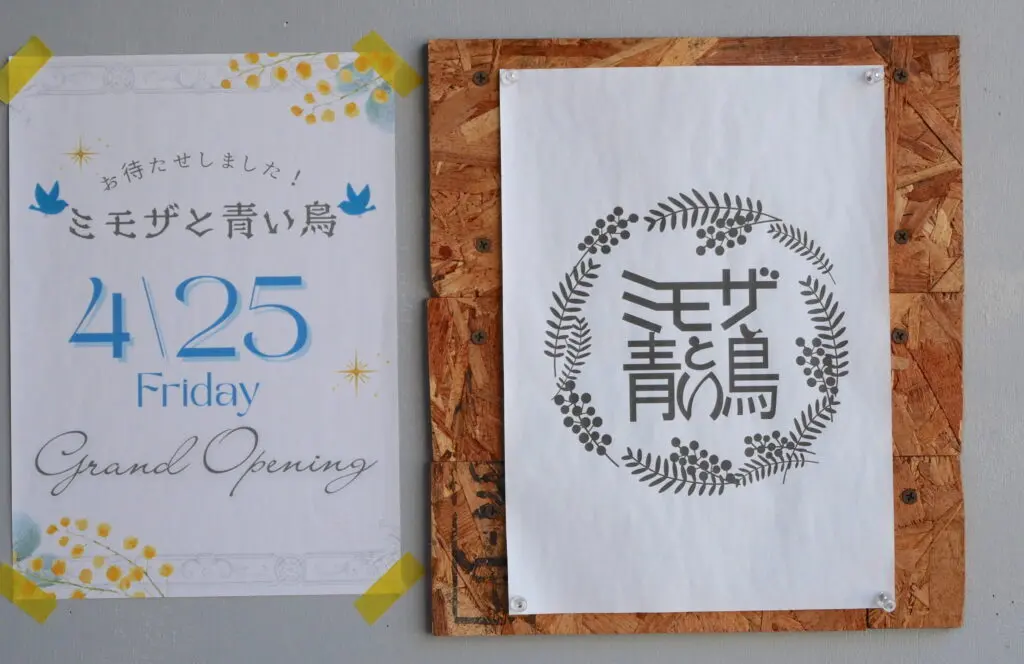 お待たせしました!
ミモザと青い鳥
4\25
Friday
Grand Opening
ミモザ
と
青い鳥